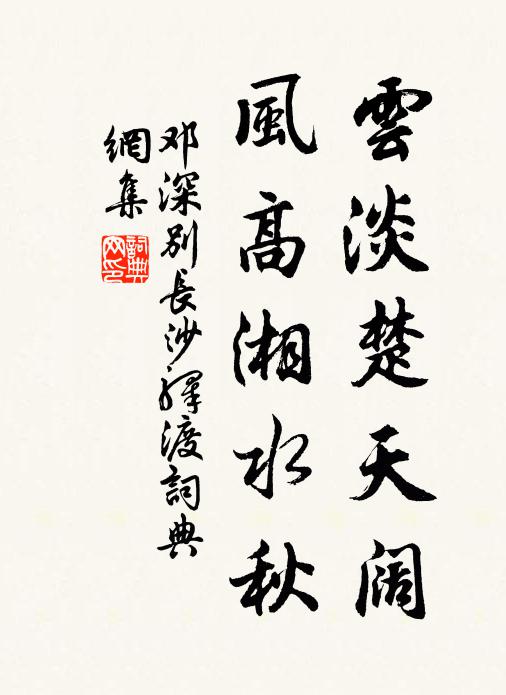 雲淡楚天阔
風高湘水秋
邓深别長沙驛渡詞典
網集
詞典
网印